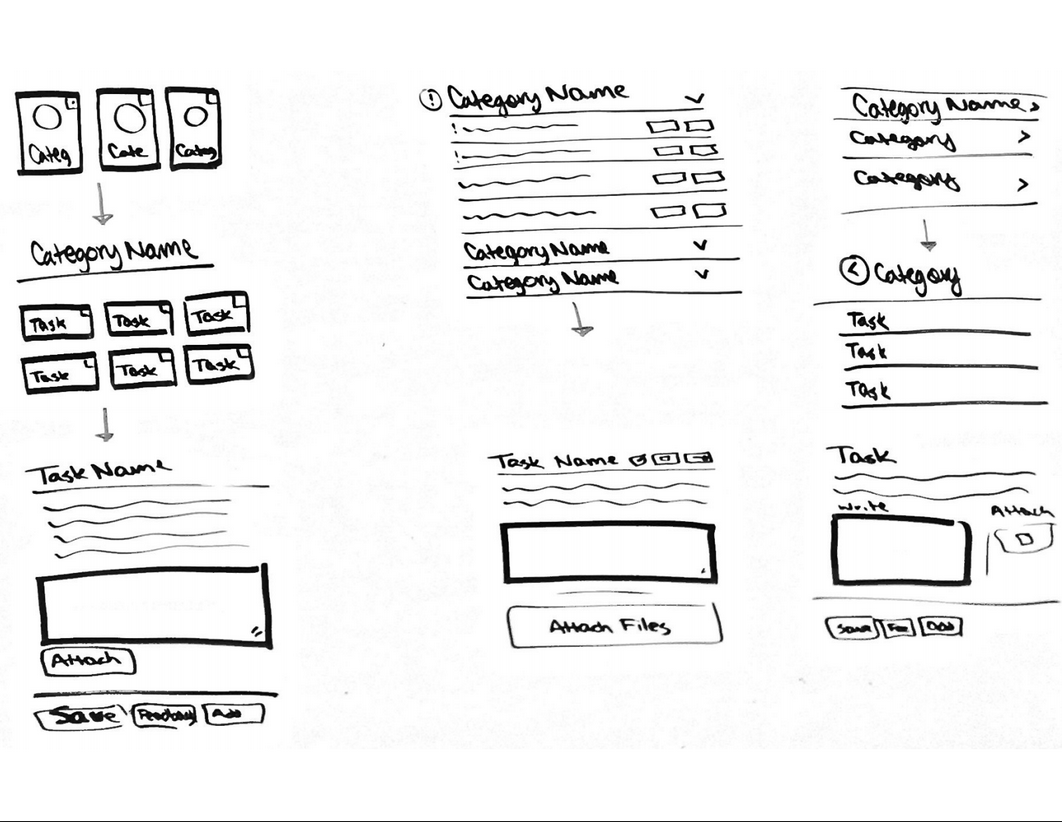 Categ
Cate
Categ
Category Name
Task
Task
Task
Task
Task
Task
Task Name
Attach
Save
Add
! Category Name
!
!
Category Name
Category Name
Task Name
Attach Files
Category Name >
Category >
Category >
< Category
Task
Task
Task
Task
Write
Attach
Save